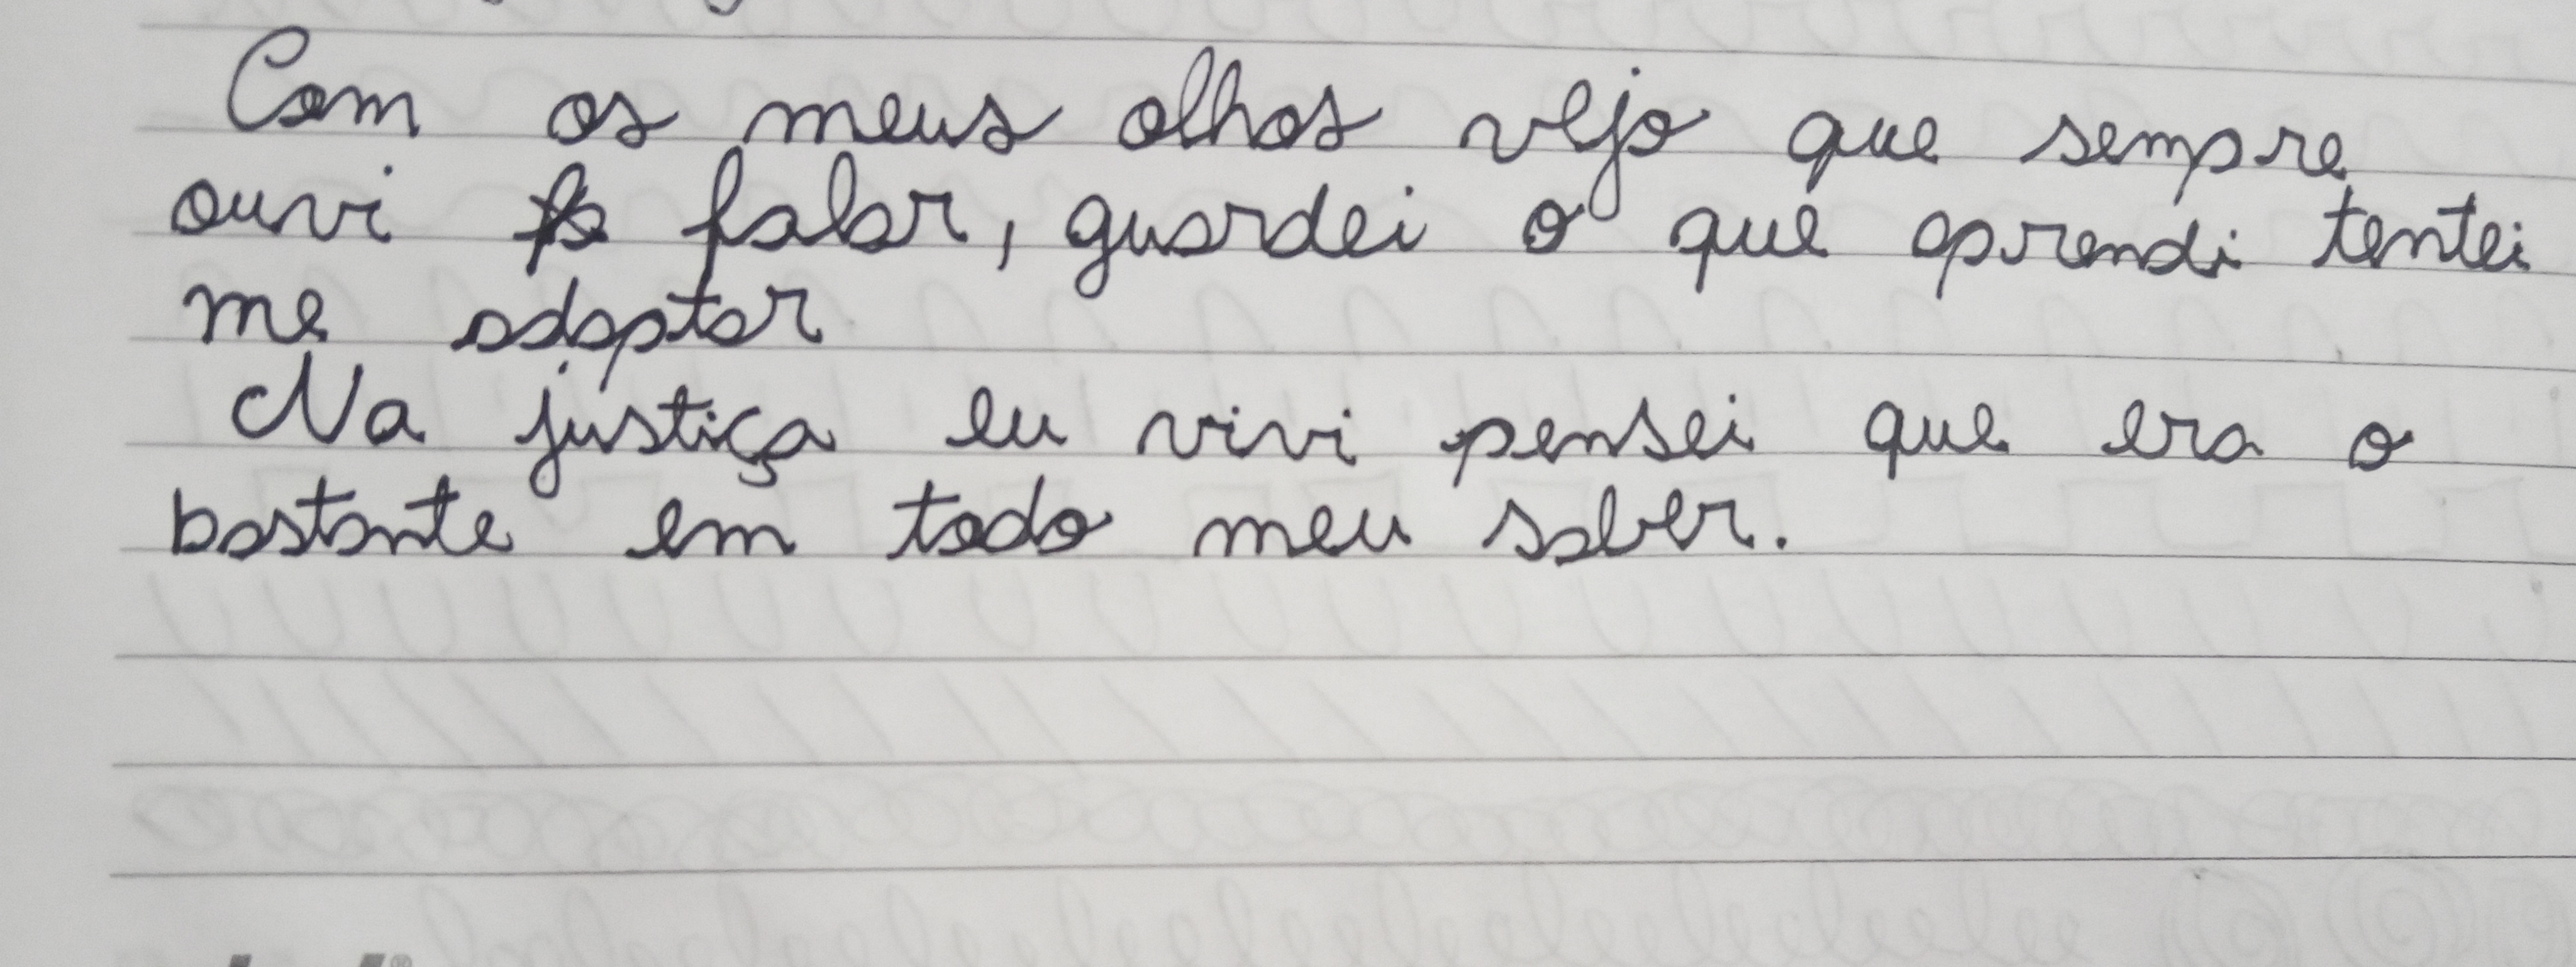 Com os meus olhos vejo que sempre
ouvi falar, guardei o que aprendi tentei
me adaptar
Na justiça eu vivi pensei que era o
bastante em todo meu saber.